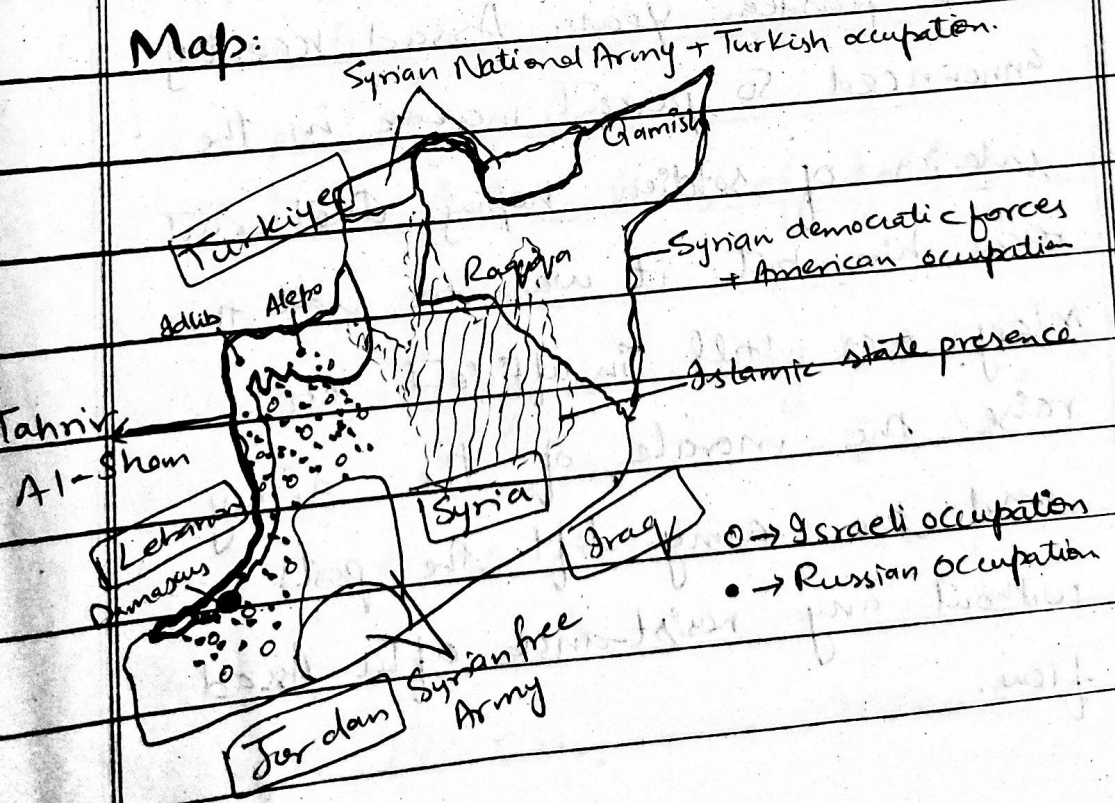 Map:
Syrian National Army + Turkish occupation.
Qamish
Turkiye
Syrian democratic forces
+ American occupation
Raqqa
Alepo
Idlib
Islamic state presence
Tahrir
Al-Sham
Syria
Lebanon
Iraq
O → Israeli occupation
• → Russian occupation
Damasus
Syrian free
Army
Jordan